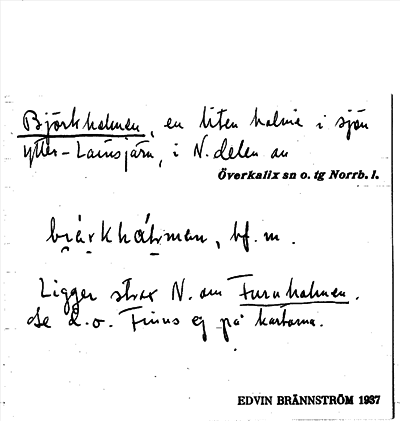 Björkholmen, en liten holme i sjön
Ytter-Lainsjärn, i N. delen av
Överkalix sn o. tg Norrb. l.
bf. m.
Ligger strax N. om Furuholmen.
Se d. o. Finns ej på kartorna.
EDVIN BRÄNNSTRÖM 1937